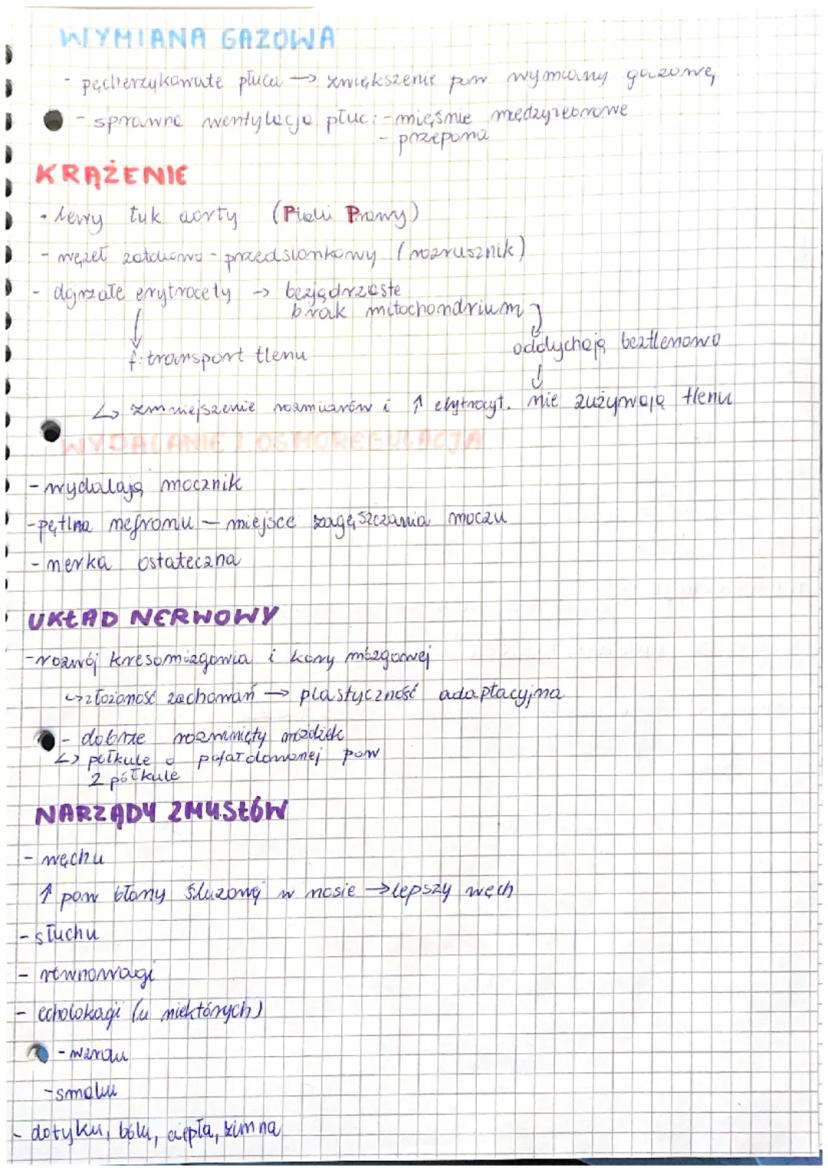 WYMIANA GAZOWA
- pęcherzykowate płuca → zwiększenie pow wymiany gazowej
- sprawna wentylacja płuc: - mięśnie międzyżebrowe
- przepona
KRĄŻENIE
- lewy łuk aorty (Ptaki Prawy)
- węzeł zatokowo - przedsionkowy (rozrusznik)
- dojrzałe erytrocyty → bezjądrzaste
brak mitochondrium
↓ oddychają beztlenowo
f: transport tlenu
↳ zmniejszenie rozmiarów i ↑ erytrocyt. nie zużywają tlenu
WYDALANIE I OSMOREGULACJA
- wydalają mocznik
- pętlna nefronu - miejsce zagęszczania moczu
- nerka ostateczna
UKŁAD NERWOWY
- rozwój kresomózgowia i kory mózgowej
↳ złożoność zachowań → plastyczność adaptacyjna
- dobrze rozwinięty móżdżek
↳ półkule o pofałdowanej pow
2 półkule
NARZĄDY ZMYSŁÓW
- węchu
↑ pow błony śluzowej w nosie → lepszy węch
- słuchu
- równowagi
- echolokacji (u niektórych)
- wzroku
- smaku
- dotyku, bólu, ciepła, zimna